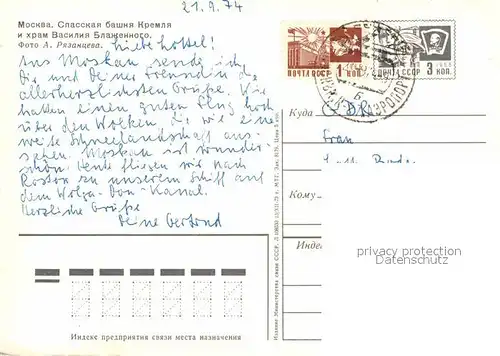 21.9.74
Москва. Спасская башня Кремля
и храм Василия Блаженного.
Фото А. Рязанцева.
Liebe
Aus Moskau sende ich
Dir und Deiner Freundin die
allerherzlichsten Grüße. Wir
hatten einen guten Flug hoch
über den Wolken die wie eine
weite Schneelandschaft aus-
sahen. Moskau ist wunder-
schön. Heute fliegen wir nach
Rostov zu unserem Schiff auf
dem Wolga-Don-Kanal.
Herzliche Grüße
Deine Gertrud
ПОЧТА СССР 1 КОП
ПОЧТА СССР 3 КОП
АЭРОПОРТ
Куда
Frau
Кому
Индекс
privacy protection
watermark
Издание Министерства связи СССР.
Индекс предприятия связи места назначения